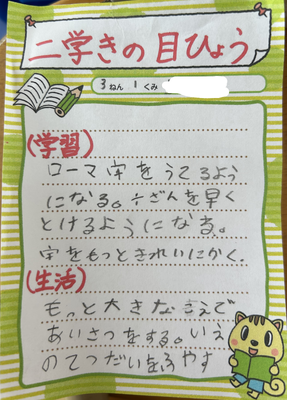 二学きの目ひょう
3ねん1くみ
(学習)
ローマ字をうてるよう
になる。÷ざんを早く
とけるようになる。
字をもっときれいにかく.
(生活)
もっと大きなこえで
あいさつをする。いえ
のてつだいをふやす